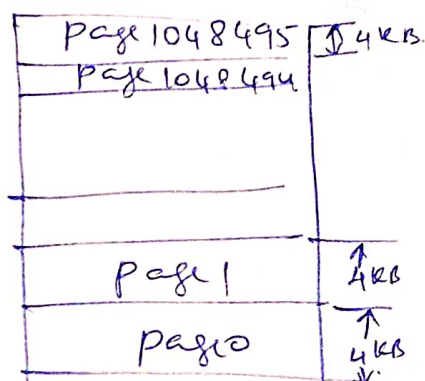 page 1048495 4KB.
page 1048494
page 1 4KB
page 0 4KB